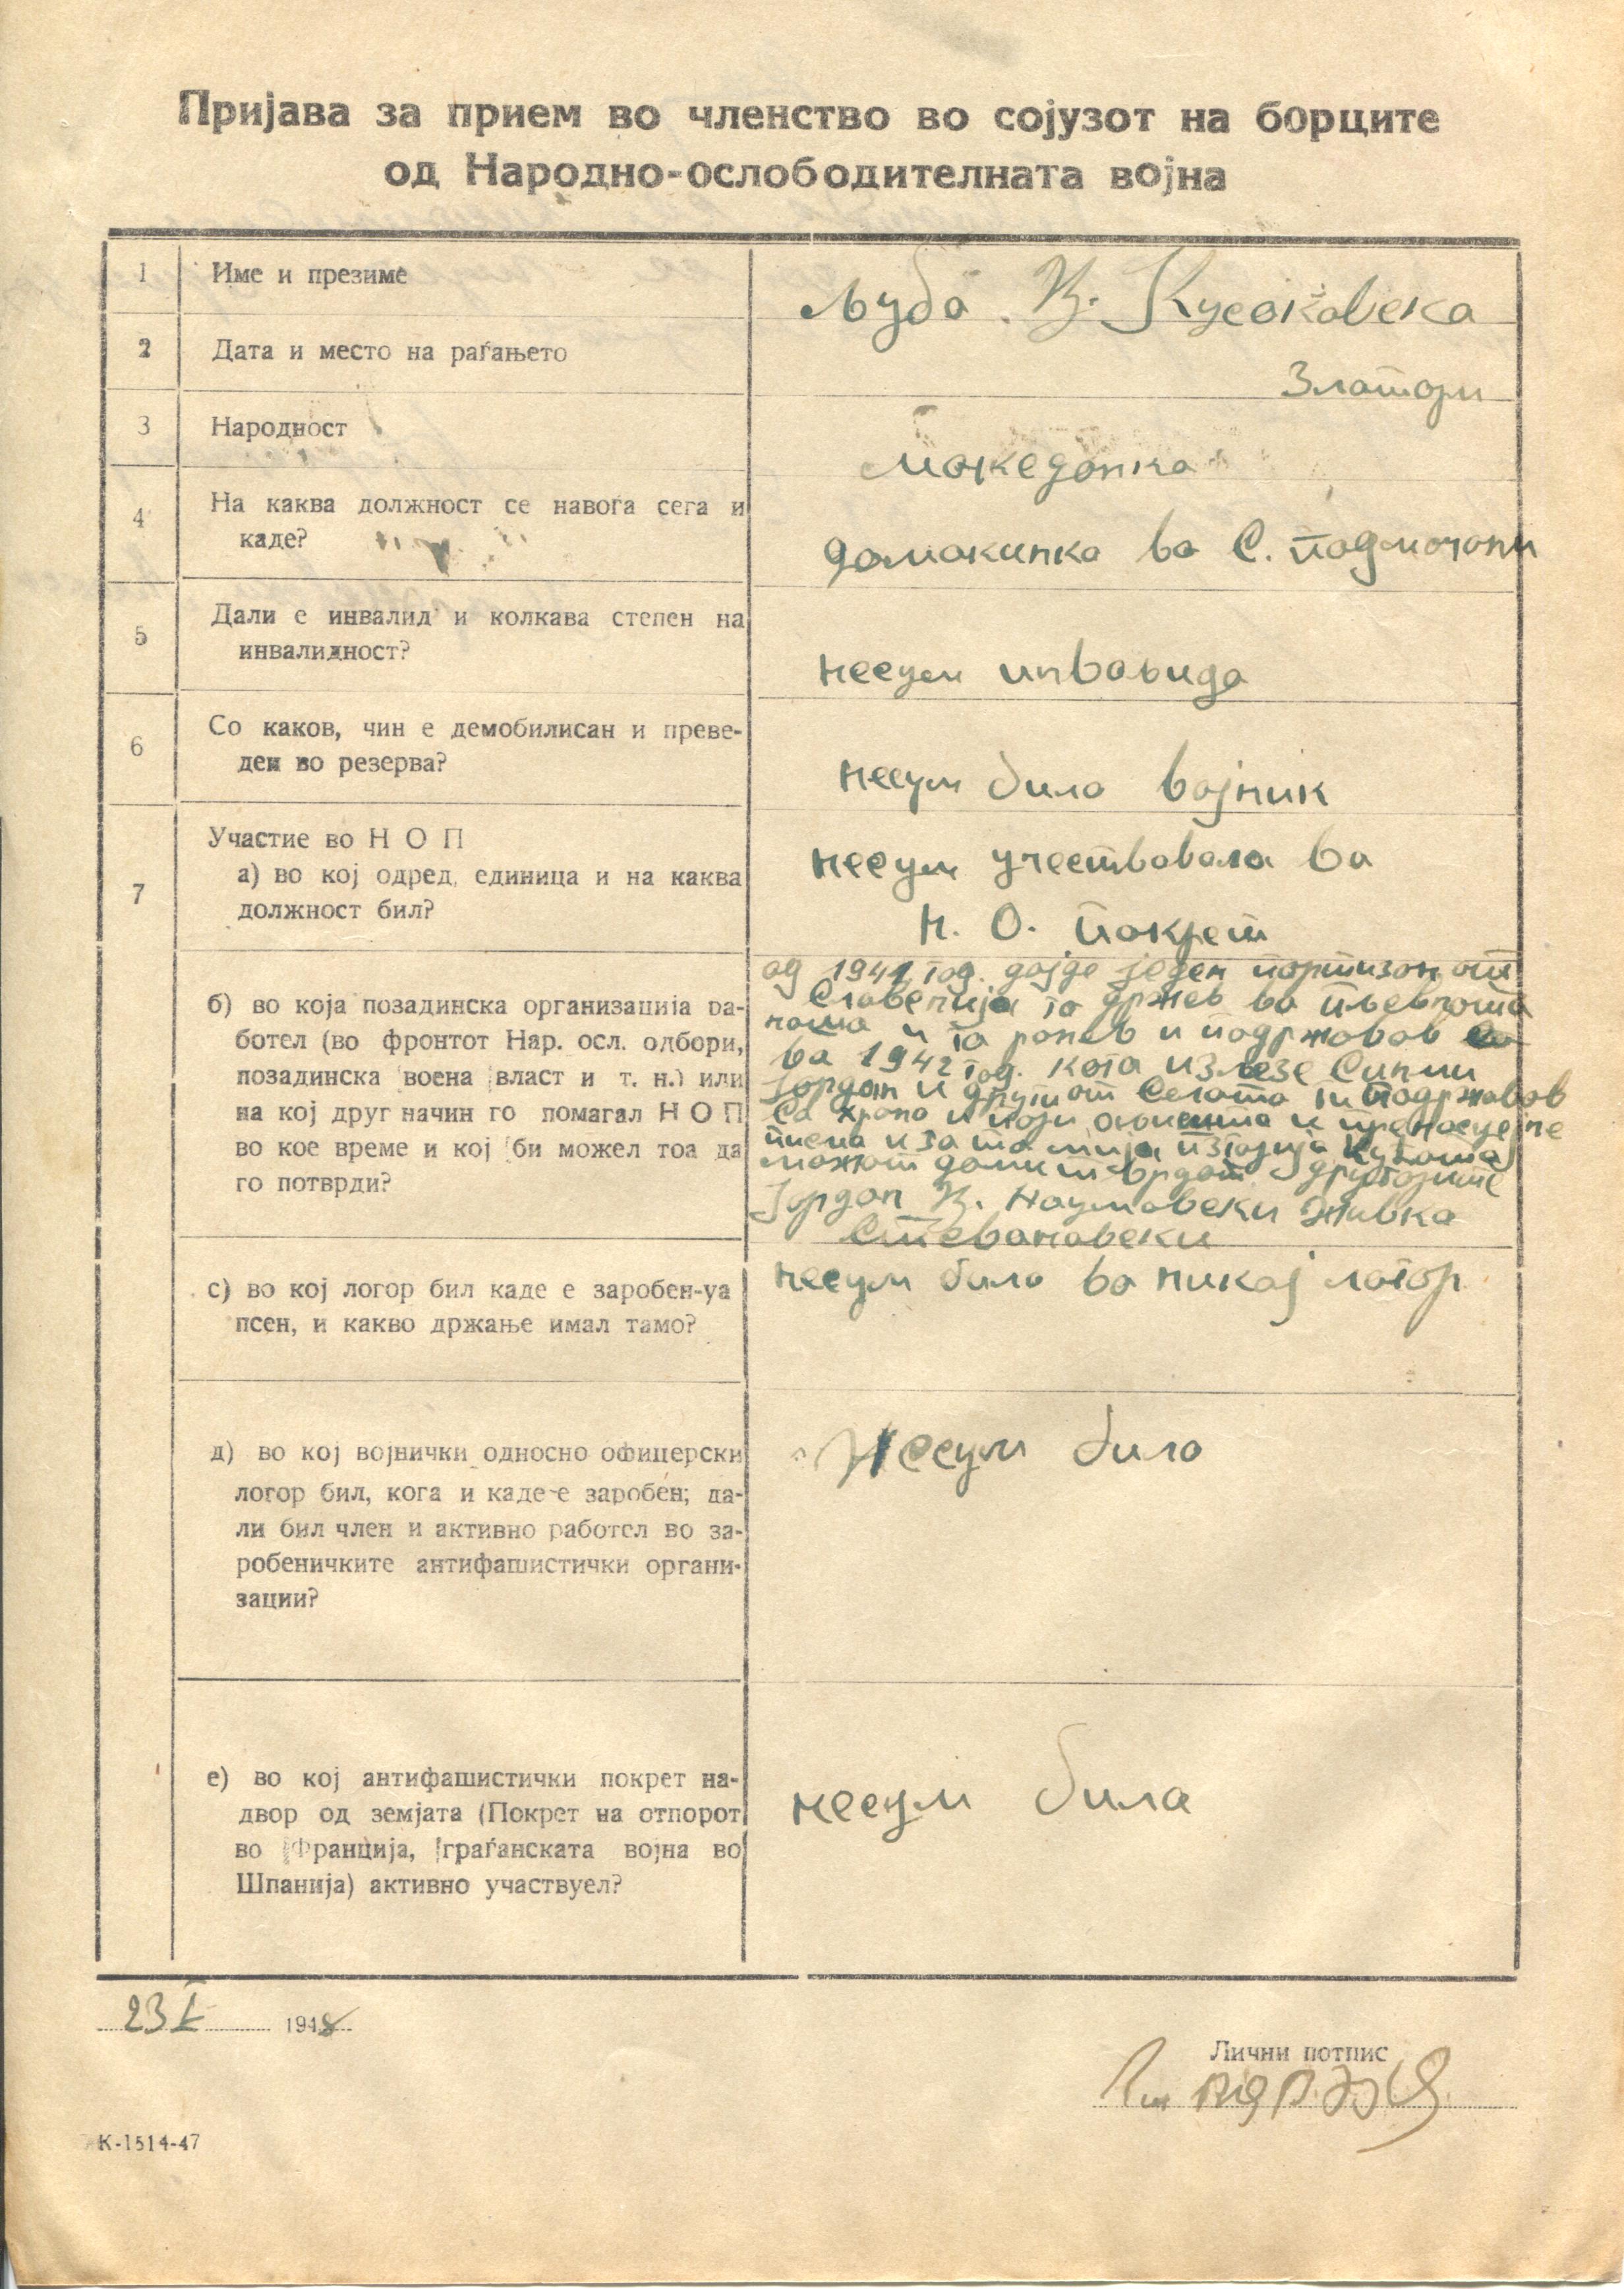 Пријава за прием во членство во сојузот на борците
од Народно-ослободителната војна
1 Име и презиме
Љуба
2 Дата и место на раѓањето
Златари
3 Народност
Македонка
4 На каква должност се навоѓа сега и
каде?
домакинка во С. Подмочани
5 Дали е инвалид и колкава степен на
инвалидност?
несум инвалида
6 Со каков, чин е демобилисан и преве-
ден во резерва?
несум била војник
7 Участие во Н О П
а) во кој одред, единица и на каква
должност бил?
несум учествовала во
Н. О. покрет
б) во која позадинска организација ра-
ботел (во фронтот Нар. осл. одбори,
позадинска воена власт и т. н.) или
на кој друг начин го помагал Н О П
во кое време и кој би можел тоа да
го потврди?
од 1941 год. дојде један партизан от
Славенија го држев во пљевната
наша и го ранев и подржавав
во 1942 год. кога излезе
Јордан и други от селото ги подржавав
са храна и
писма и за тоа
можат
Јордан Наумовски Живко
Стевановски
с) во кој логор бил каде е заробен-уа
псен, и какво држање имал тамо?
несум била во никај логор
д) во кој војнички односно офицерски
логор бил, кога и каде е заробен; да-
ли бил член и активно работел во за-
робеничките антифашистички органи-
зации?
Несум била
е) во кој антифашистички покрет на-
двор од земјата (Покрет на отпорот
во Франција, граѓанската војна во
Шпанија) активно участвуел?
несум била
23 I 1948
Лични потпис
К-1514-47